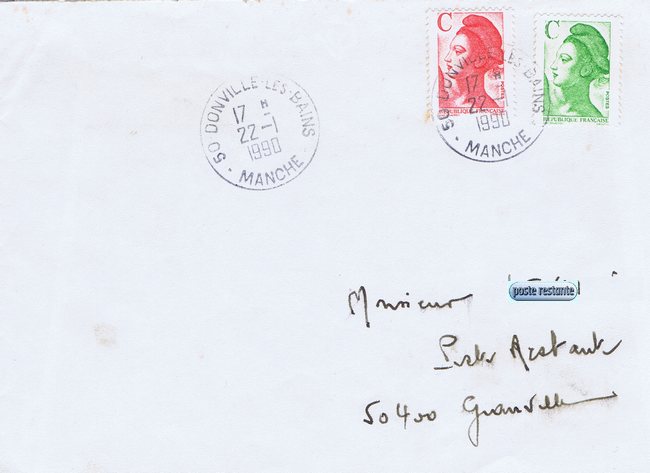 C
REPUBLIQUE FRANÇAISE
C
POSTES
REPUBLIQUE FRANÇAISE
50 DONVILLE-LES-BAINS
17 H
22-1
1990
MANCHE
50 DONVILLE-LES-BAINS
17 H
22-1
1990
MANCHE
poste restante
Monsieur
Poste Restante
50400 Granville